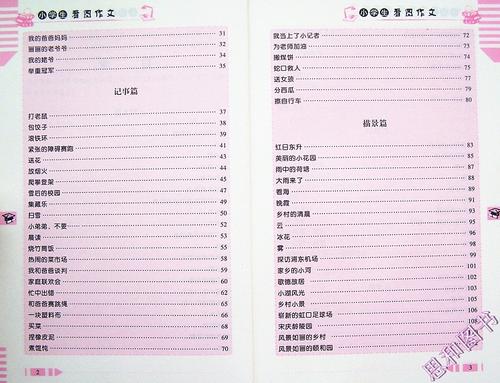 小学生看图作文
我的爸爸妈妈 31
丽丽的老爷爷 32
我的姥爷 34
举重冠军 35
记事篇
打老鼠 37
包饺子 38
滚铁环 39
紧张的障碍赛跑 41
送花 43
放烟火 44
爬攀登架 45
雪后的校园 47
集藏乐 49
扫雪 50
小弟弟,不要 52
晨读 53
烧竹筒饭 55
热闹的菜市场 58
我和爸爸谈判 59
家庭联欢会 60
忙中出错 62
和爸爸赛跳绳 65
一块塑料布 66
买菜 68
捏橡皮泥 69
煮馄饨 70
2
小学生看图作文
我当上了小记者 72
为老师加油 73
搬煤饼 74
蛇口救人 75
送女孩 77
分西瓜 79
擦自行车 80
描景篇
红日东升 83
美丽的小花园 85
雨中的荷塘 87
大雨来了 88
看海 89
晚霞 91
乡村的清晨 93
云 95
冰花 96
雾 98
探访浦东机场 99
家乡的小河 101
歌德故居 102
小湖风光 103
乡村小景 105
崭新的虹口足球场 106
宋庆龄陵园 108
风景如画的乡村
风景如画的颐和园
3
思和图书